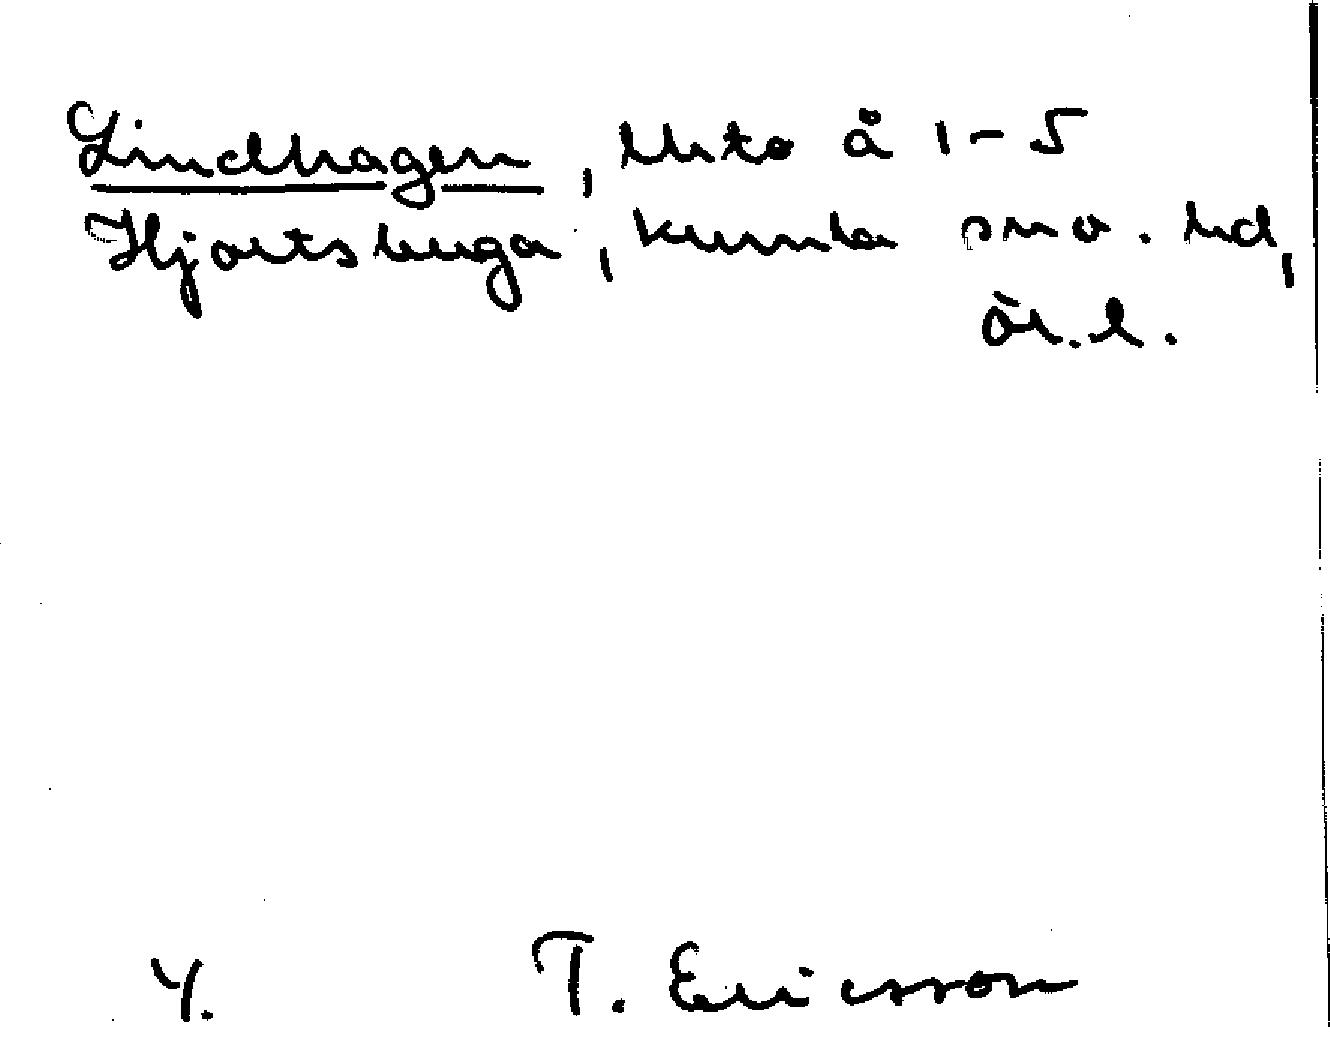 Lindhagen, Mito å 1-5
Hjortsberga, Kumla sn o. hd,
Ör.l.
Y. T. Ericsson